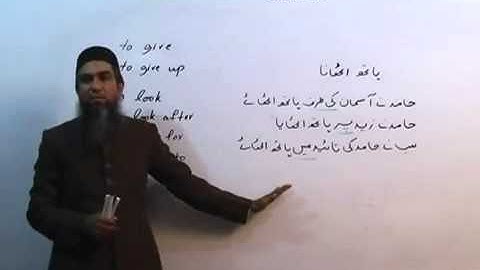 to give
to give up
look
look after
for
to
ہاتھ اٹھانا
حامد نے آسمان کی طرف ہاتھ اٹھائے
حامد نے زید پر ہاتھ اٹھایا
سب نے حامد کی تائید میں ہاتھ اٹھائے